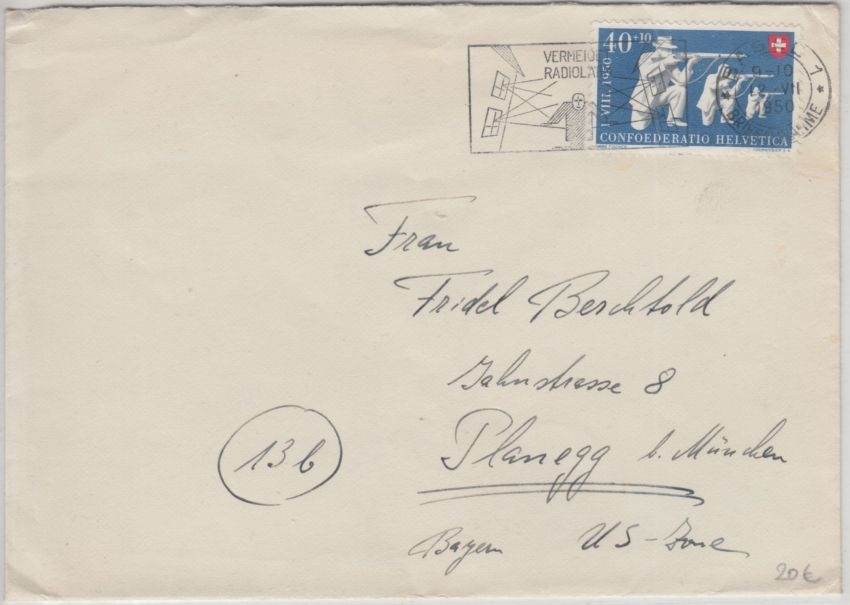 VERMEIDE
RADIOLÄ
40+10
1. VIII. 1950
CONFOEDERATIO HELVETICA
BASEL 1
9-10
VII
1950
Frau
Fridel Berchtold
Jahnstrasse 8
13b
Planegg b. München
Bayern US-Zone
20€